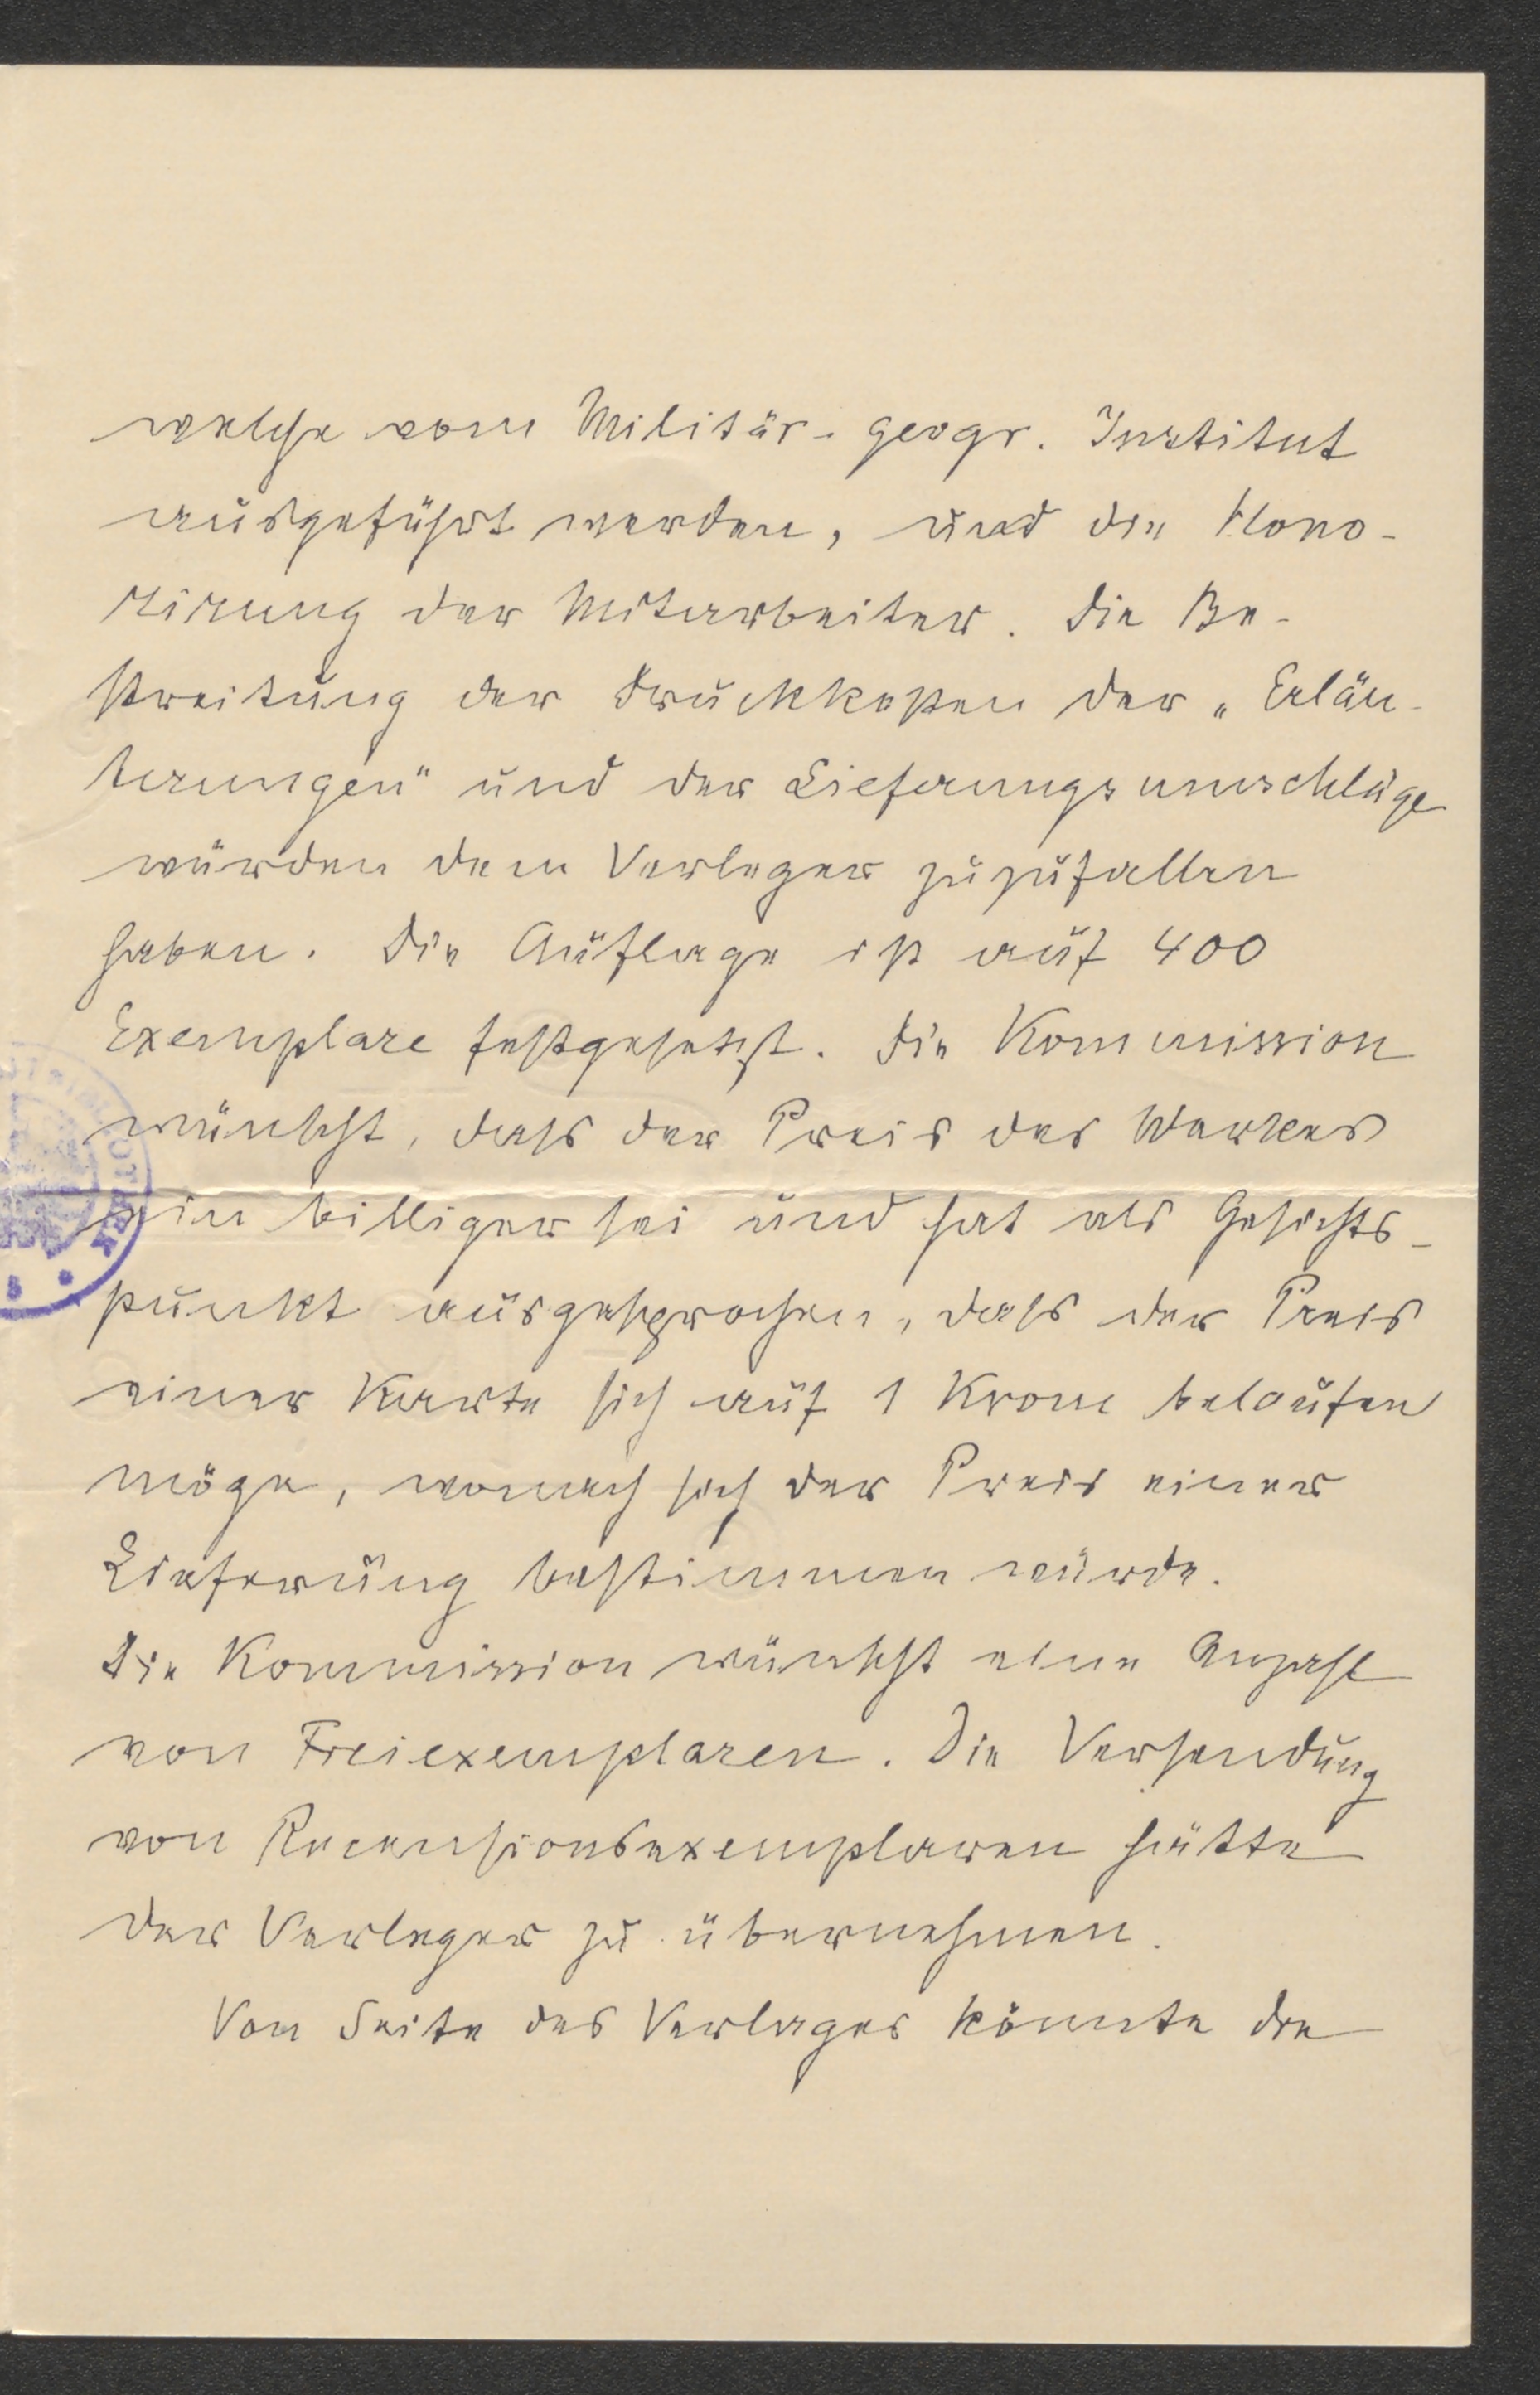 welche vom Militär-geogr. Institut
ausgeführt werden, und die Hono-
rirung der Mitarbeiter. Die Be-
streitung der Druckkosten der „Erläu-
terungen" und der Lieferungsumschläge
würden dem Verleger zuzufallen
haben. Die Auflage ist auf 400
Exemplare festgesetzt. Die Kommission
wünscht, dass der Preis des Werkes
ein billiger sei und hat als Gesichts-
punkt ausgesprochen, dass der Preis
einer Karte sich auf 1 Krone belaufen
möge, wonach sich der Preis einer
Lieferung bestimmen würde.
Die Kommission wünscht eine Anzahl
von Freiexemplaren. Die Versendung
von Recensionsexemplaren hätte
der Verleger zu übernehmen.
Von Seite des Verlages könnte die